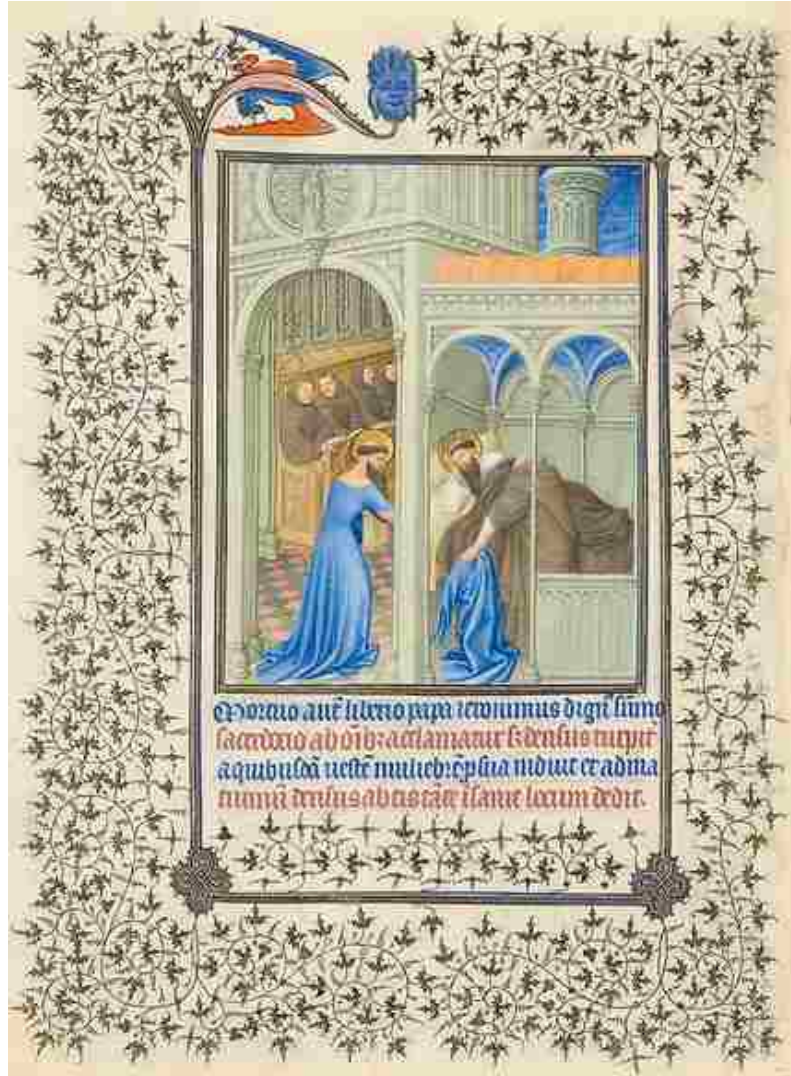 Mortuo aut̄ liberio papa ieronimus dign̄ sūmo
sacerdocio ab oīb; acclamatur s; densus turpit̄
a quibusdā vestē muliebrē p̄ sua induit et ad ma
tutinū densus ab eis tāte īsanie locum dedit.